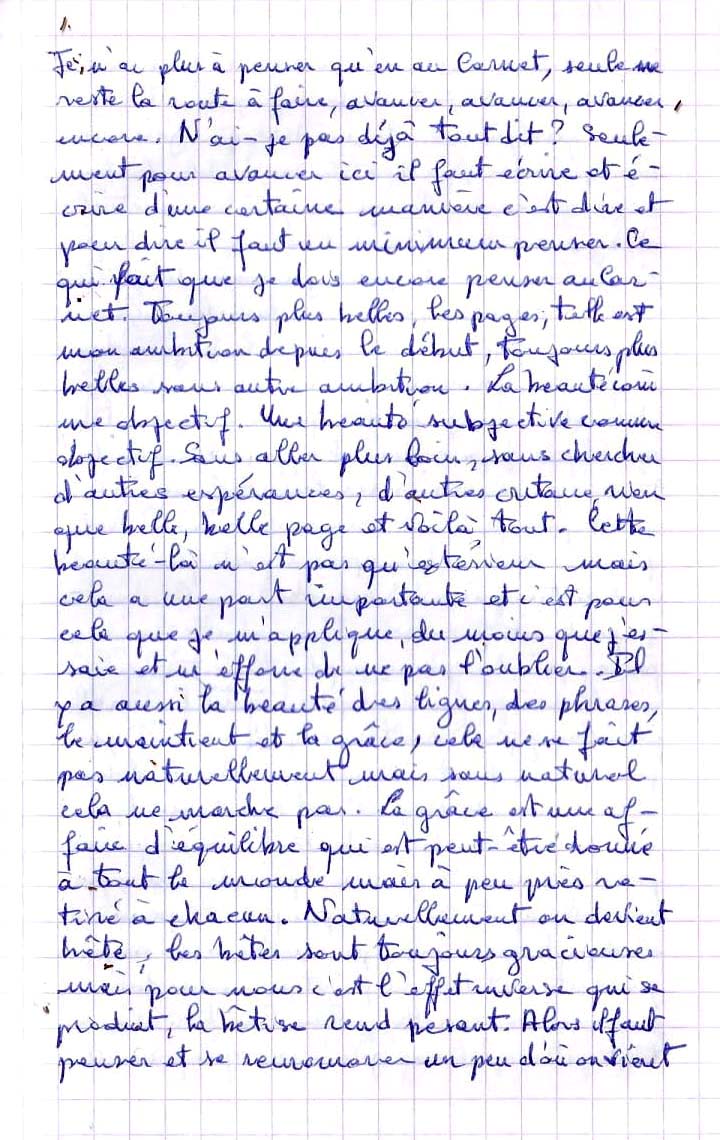 1.
Je n'ai plus à penser qu'en au Carnet, seule me
reste la route à faire, avancer, avancer, avancer,
encore. N'ai-je pas déjà tout dit? Seule-
ment pour avancer ici il faut écrire et é-
crire d'une certaine manière c'est dire et
pour dire il faut un minimum penser. Ce
qui fait que je dois encore penser au Car-
net. Toujours plus belles, les pages, telle est
mon ambition depuis le début, toujours plus
belles sans autre ambition. La beauté com
me objectif. Une beauté subjective comme
objectif. Sans aller plus loin, sans chercher
d'autres espérances, d'autres critères, rien
que belle, belle page et voilà tout. Cette
beauté-là n'est pas qu'extérieur mais
cela a une part importante et c'est pour
cela que je m'applique, du moins que j'es-
saie et m'efforce de ne pas l'oublier. Il
y a aussi la beauté des lignes, des phrases,
le maintient et la grâce, cela ne se fait
pas naturellement mais sans naturel
cela ne marche pas. La grâce est une af-
faire d'équilibre qui est peut-être donné
à tout le monde mais à peu près re-
tiré à chacun. Naturellement on devient
bête, les bêtes sont toujours gracieuses
mais pour nous c'est l'effet inverse qui se
produit, la bêtise rend pesant. Alors il faut
penser et se remémorer un peu d'où on vient